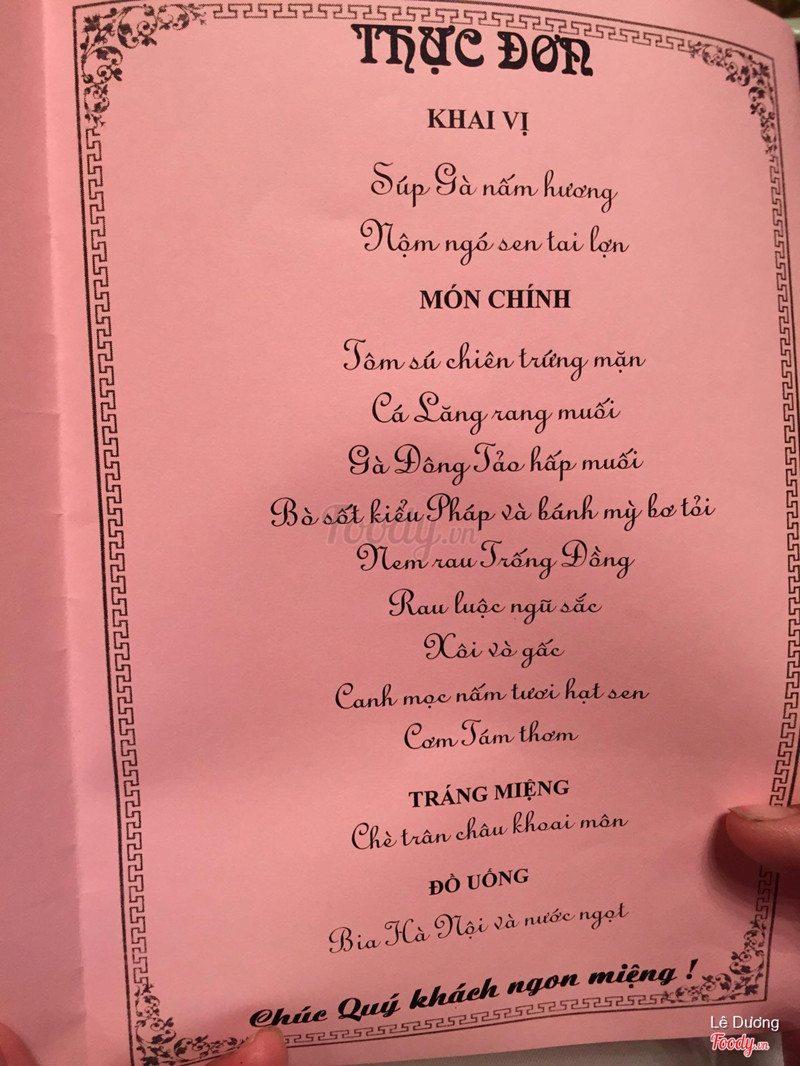 THỰC ĐƠN
KHAI VỊ
Súp Gà nấm hương
Nộm ngó sen tai lợn
MÓN CHÍNH
Tôm sú chiên trứng mặn
Cá Lăng rang muối
Gà Đông Tảo hấp muối
Bò sốt kiểu Pháp và bánh mỳ bơ tỏi
Foody.vn
Nem rau Trống Đồng
Rau luộc ngũ sắc
Xôi vò gấc
Canh mọc nấm tươi hạt sen
Cơm Tám thơm
TRÁNG MIỆNG
Chè trân châu khoai môn
ĐỒ UỐNG
Bia Hà Nội và nước ngọt
Chúc Quý khách ngon miệng !
Lê Dương
Foody.vn